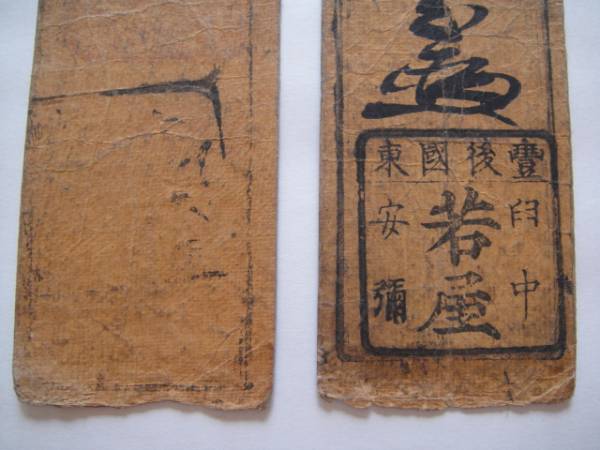 豐後國東
臼中
若屋
安彌